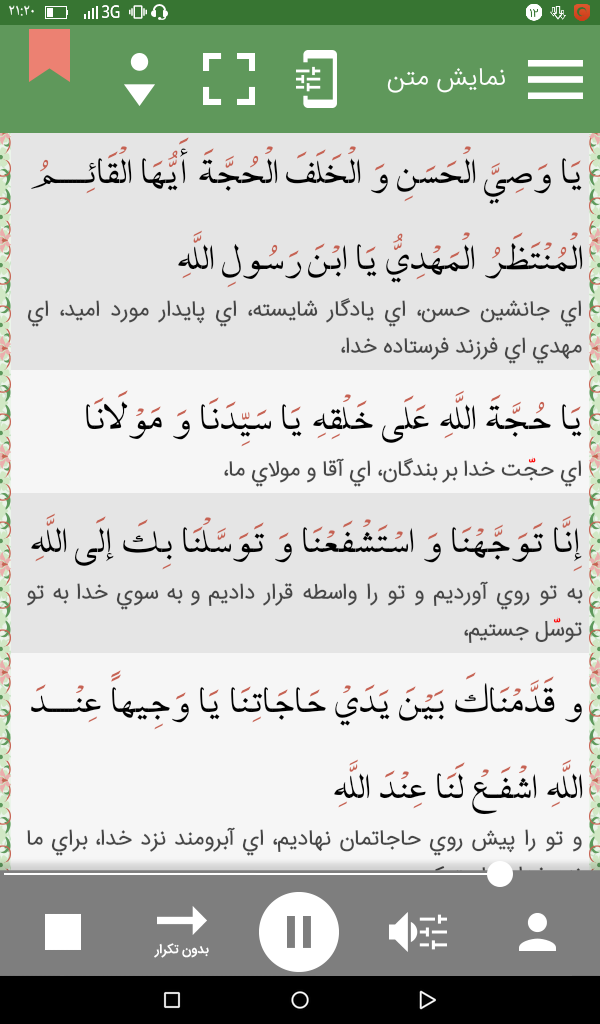 ۲۱:۲۰ 3G ۱۲
نمایش متن
يَا وَصِيَّ الْحَسَنِ وَ الْخَلَفَ الْحُجَّةَ أَيُّهَا الْقَائِـــمُ
الْمُنْتَظَرُ الْمَهْدِيُّ يَا ابْنَ رَسُولِ اللَّهِ
اي جانشين حسن، اي يادگار شايسته، اي پايدار مورد اميد، اي
مهدي اي فرزند فرستاده خدا،
يَا حُجَّةَ اللَّهِ عَلَى خَلْقِهِ يَا سَيِّدَنَا وَ مَوْلَانَا
اي حجّت خدا بر بندگان، اي آقا و مولاي ما،
إِنَّا تَوَجَّهْنَا وَ اسْتَشْفَعْنَا وَ تَوَسَّلْنَا بِكَ إِلَى اللَّهِ
به تو روي آورديم و تو را واسطه قرار داديم و به سوي خدا به تو
توسّل جستيم،
و قَدَّمْنَاكَ بَيْنَ يَدَيْ حَاجَاتِنَا يَا وَجِيهاً عِنْـــدَ
اللَّهِ اشْفَعْ لَنَا عِنْدَ اللَّهِ
و تو را پيش روي حاجاتمان نهاديم، اي آبرومند نزد خدا، براي ما
بدون تکرار